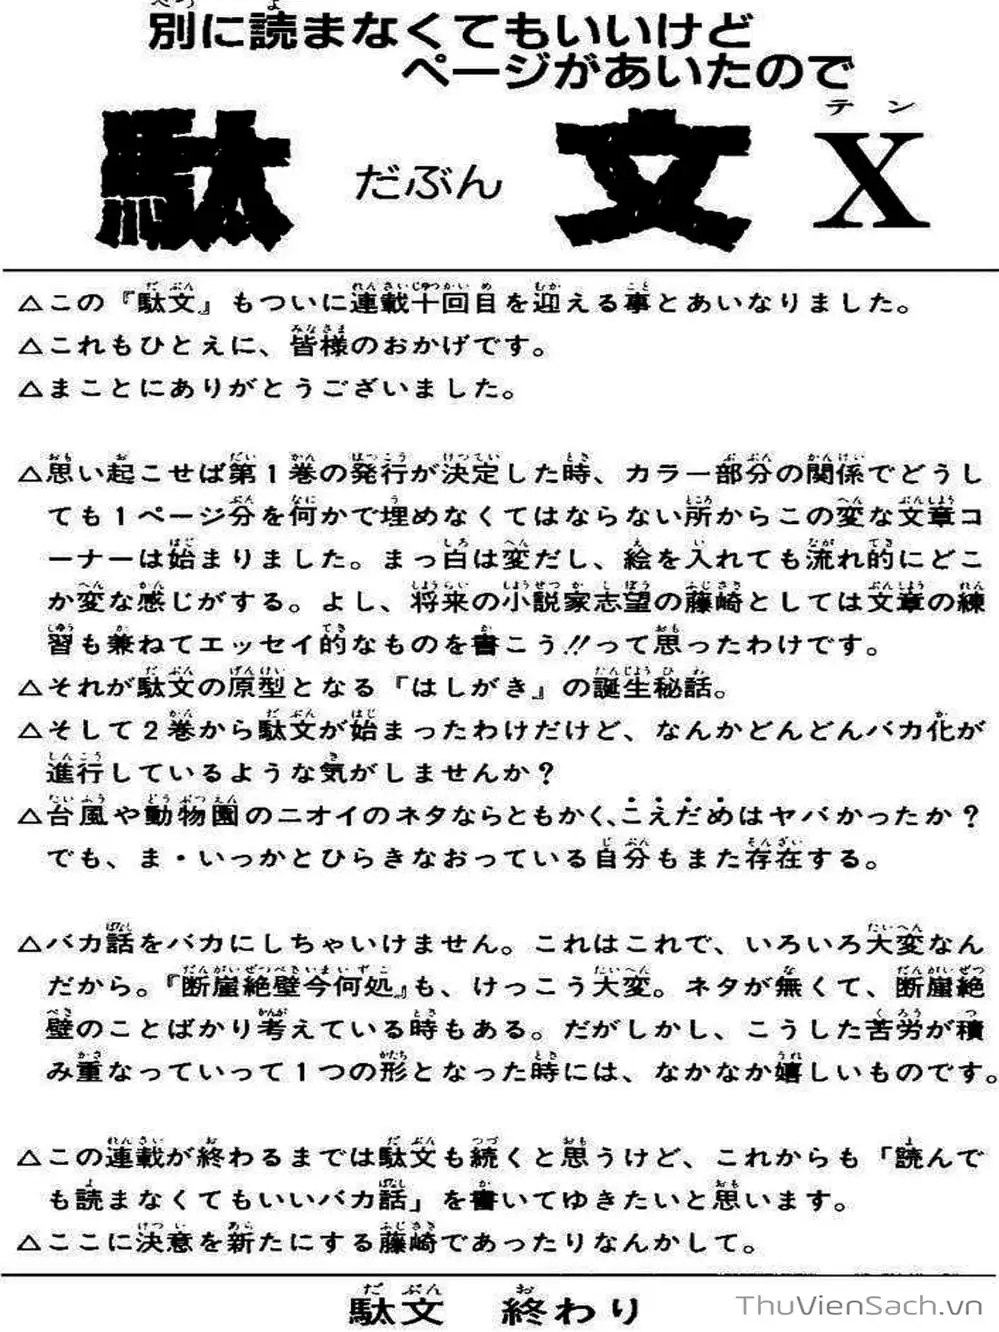 別に読まなくてもいいけど
ページがあいたので
駄文X
だぶん
テン
△この『駄文』もついに連載十回目を迎える事とあいなりました。
△これもひとえに、皆様のおかげです。
△まことにありがとうございました。
△思い起こせば第1巻の発行が決定した時、カラー部分の関係でどうし
ても1ページ分を何かで埋めなくてはならない所からこの変な文章コ
ーナーは始まりました。まっ白は変だし、絵を入れても流れ的にどこ
か変な感じがする。よし、将来の小説家志望の藤崎としては文章の練
習も兼ねてエッセイ的なものを書こう!!って思ったわけです。
△それが駄文の原型となる『はしがき』の誕生秘話。
△そして2巻から駄文が始まったわけだけど、なんかどんどんバカ化が
進行しているような気がしませんか?
△台風や動物園のニオイのネタならともかく、こえだめはヤバかったか?
でも、ま・いっかとひらきなおっている自分もまた存在する。
△バカ話をバカにしちゃいけません。これはこれで、いろいろ大変なん
だから。『断崖絶壁今何処』も、けっこう大変。ネタが無くて、断崖絶
壁のことばかり考えている時もある。だがしかし、こうした苦労が積
み重なっていって1つの形となった時には、なかなか嬉しいものです。
△この連載が終わるまでは駄文も続くと思うけど、これからも「読んで
も読まなくてもいいバカ話」を書いてゆきたいと思います。
△ここに決意を新たにする藤崎であったりなんかして。
駄文 終わり
ThuVienSach.vn